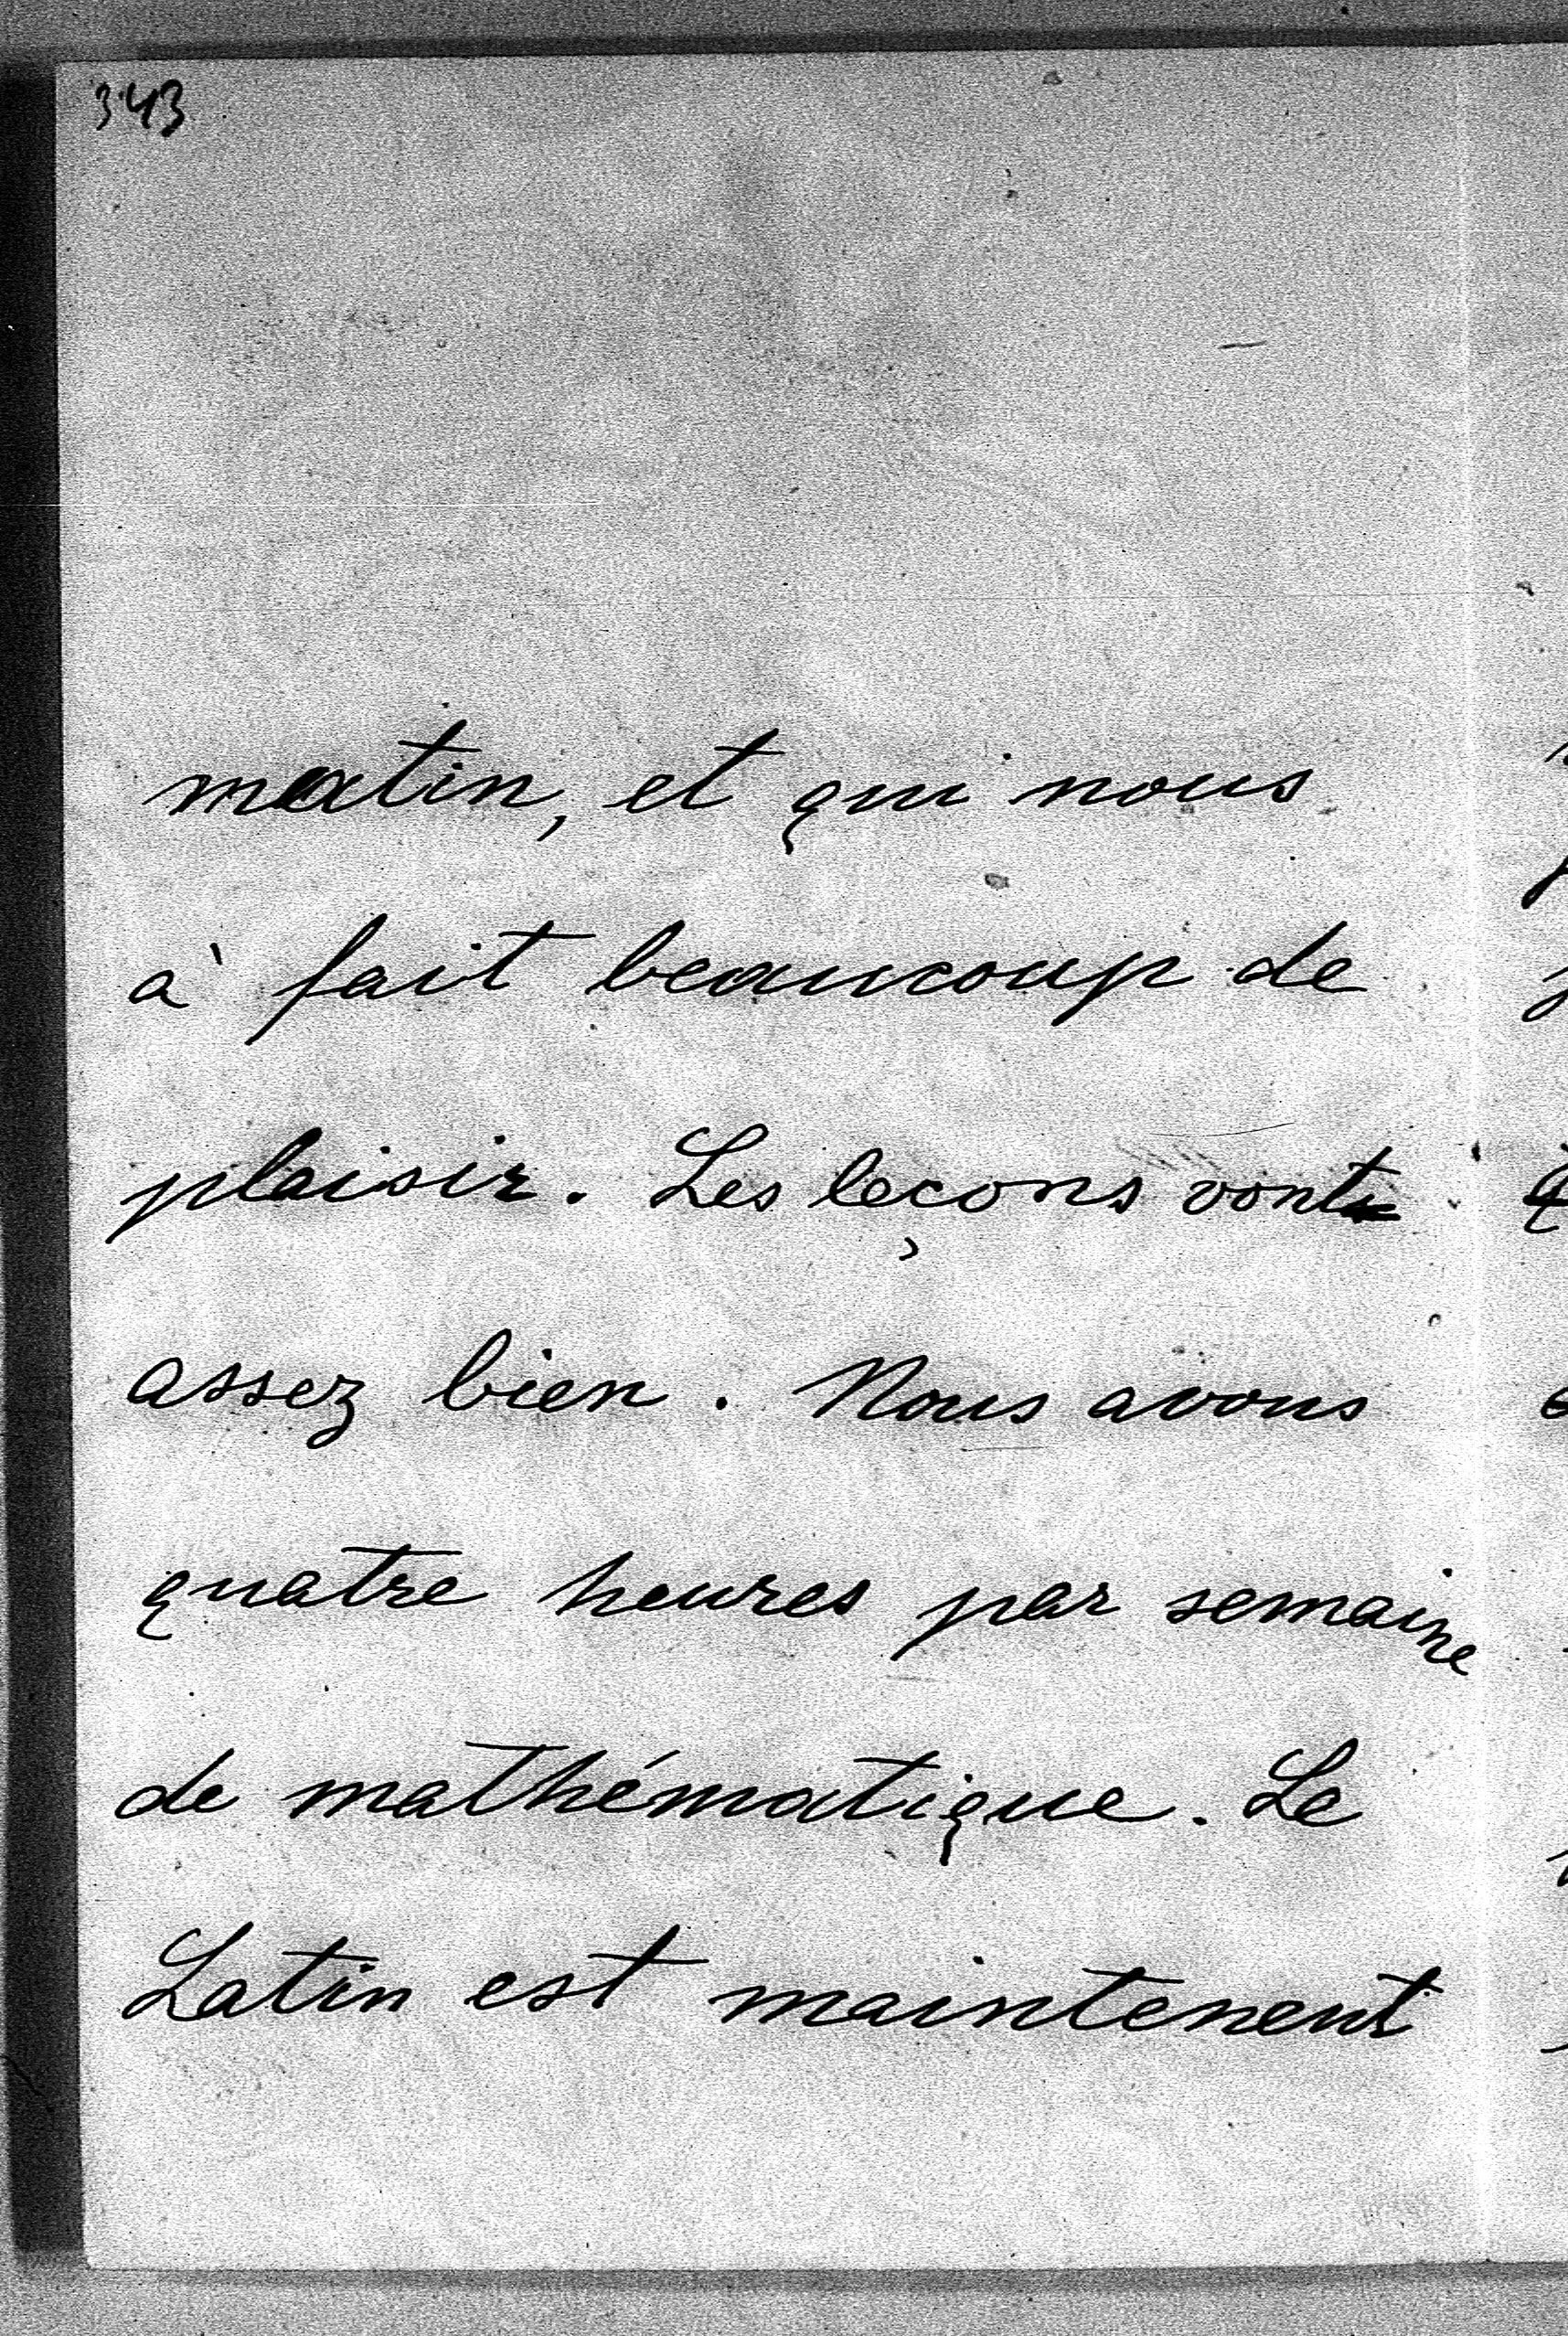 343
matin, et qui nous
à fait beaucoup de
plaisir. Les leçons vont
assez bien. Nous avons
quatre heures par semaine
de mathématique. Le
Latin est maintenent